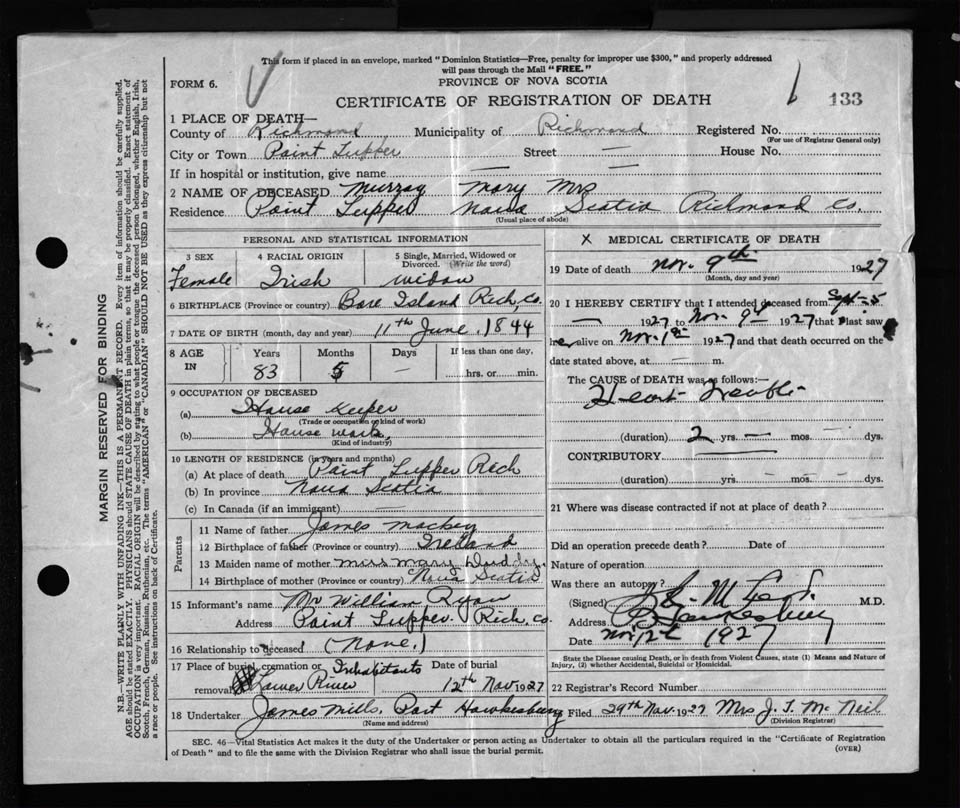 This form if placed in an envelope, marked "Dominion Statistics—Free, penalty for improper use $300," and properly addressed
will pass through the Mail "FREE."
FORM 6.
PROVINCE OF NOVA SCOTIA
CERTIFICATE OF REGISTRATION OF DEATH
133
1 PLACE OF DEATH—
County of Richmond Municipality of Richmond Registered No.
(For use of Registrar General only)
City or Town Point Tupper Street — House No. —
If in hospital or institution, give name — —
2 NAME OF DECEASED Murray Mary Mrs
Residence Point Tupper Nova Scotia Richmond Co.
(Usual place of abode)
PERSONAL AND STATISTICAL INFORMATION
3 SEX 4 RACIAL ORIGIN 5 Single, Married, Widowed or Divorced. (Write the word)
Female Irish widow
6 BIRTHPLACE (Province or country) Bare Island Rich, Co.
7 DATE OF BIRTH (month, day and year) 11th June, 1844
8 AGE IN Years Months Days If less than one day,
83 5 — hrs. or min.
9 OCCUPATION OF DECEASED
(a) House Keeper
(Trade or occupation or kind of work)
(b) House work,
(Kind of industry)
10 LENGTH OF RESIDENCE (in years and months)
(a) At place of death Point Tupper Rich
(b) In province Nova Scotia
(c) In Canada (if an immigrant) —
Parents
11 Name of father James Mackey
12 Birthplace of father (Province or country) Ireland
13 Maiden name of mother Miss Mary
14 Birthplace of mother (Province or country) Nova Scotia
15 Informant's name Mr William Ryan
Address Point Tupper. Rich, Co.
16 Relationship to deceased (None.)
17 Place of burial, cremation or removal Inhabitants Lower River Date of burial 12th Nov 1927
18 Undertaker James Mills, Port Hawkesbury
(Name and address)
X MEDICAL CERTIFICATE OF DEATH
19 Date of death Nov. 9th 1927
(Month, day and year)
20 I HEREBY CERTIFY that I attended deceased from Sept-5
— 1927 to Nov. 9th 1927 that I last saw
her alive on Nov. 1st 1927 and that death occurred on the
date stated above, at — m.
The CAUSE of DEATH was as follows:—
Heart Trouble
(duration) 2 yrs. — mos. — dys.
CONTRIBUTORY
(duration) yrs. mos. dys.
21 Where was disease contracted if not at place of death?
Did an operation precede death? Date of
Nature of operation
Was there an autopsy?
(Signed) M.D.
Address Hawkesbury
Date Nov 12th 1927
State the Disease causing Death, or in death from Violent Causes, state (1) Means and Nature of
Injury, (2) whether Accidental, Suicidal or Homicidal.
22 Registrar's Record Number
Filed 29th Nov. 1927 Mrs J. T. Mc Neil
(Division Registrar)
SEC. 46—Vital Statistics Act makes it the duty of the Undertaker or person acting as Undertaker to obtain all the particulars required in the "Certificate of Registration
of Death" and to file the same with the Division Registrar who shall issue the burial permit.
(OVER)
MARGIN RESERVED FOR BINDING
N.B.—WRITE PLAINLY WITH UNFADING INK—THIS IS A PERMANENT RECORD. Every item of information should be carefully supplied.
AGE should be stated EXACTLY. PHYSICIANS should STATE CAUSE OF DEATH in plain terms, so that it may be properly classified. Exact statement of
OCCUPATION is very important. RACIAL ORIGIN will be described by stating to what people or tongue the deceased person belonged, whether English, Irish,
Scotch, French, German, Russian, Ruthenian, etc. The terms "AMERICAN" or "CANADIAN" SHOULD NOT BE USED as they express citizenship but not
a race or people. See instructions on back of Certificate.